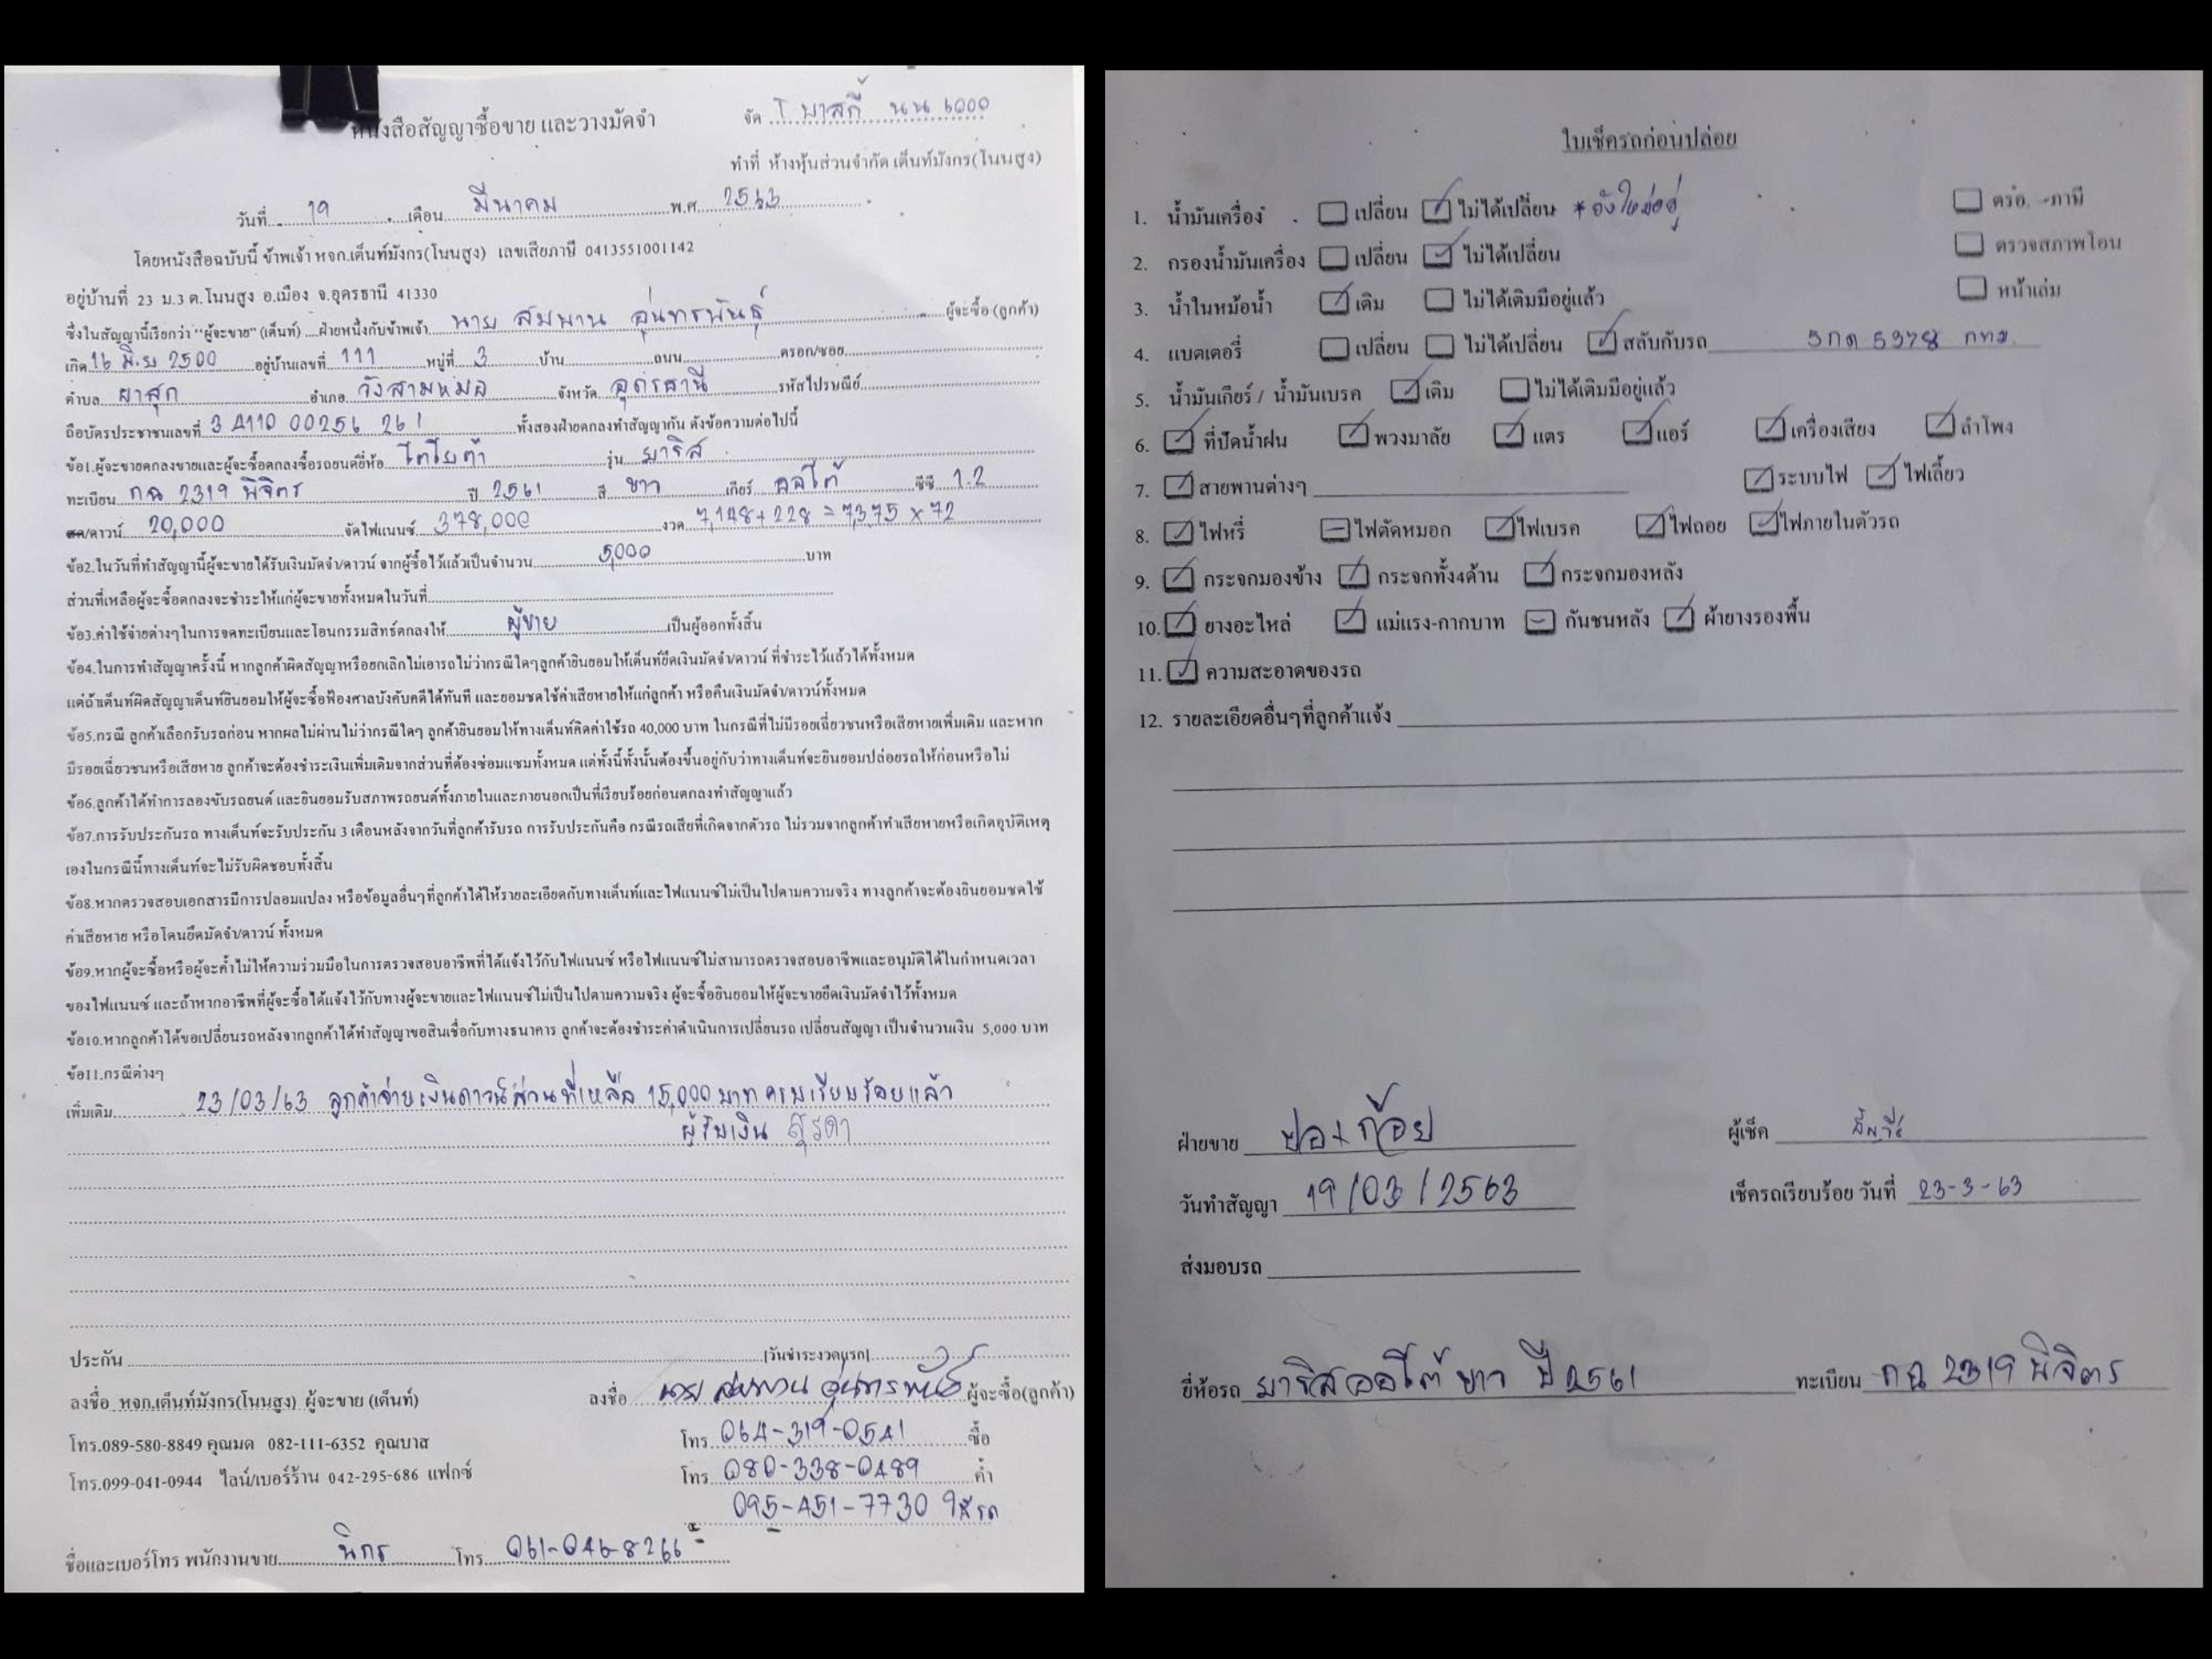 หนังสือสัญญาซื้อขาย และวางมัดจำ
จัด T บาสกี้ นน 6000
ทำที่ ห้างหุ้นส่วนจำกัด เต็นท์มังกร(โนนสูง)
วันที่ 19 เดือน มีนาคม พ.ศ. 2563
โดยหนังสือฉบับนี้ ข้าพเจ้า หจก.เต็นท์มังกร(โนนสูง) เลขเสียภาษี 0413551001142
อยู่บ้านที่ 23 ม.3 ต.โนนสูง อ.เมือง จ.อุดรธานี 41330
ซึ่งในสัญญานี้เรียกว่า "ผู้จะขาย" (เต็นท์) ....ฝ่ายหนึ่งกับข้าพเจ้า นาย สมพาน อุ่นทรพันธุ์ ผู้จะซื้อ (ลูกค้า)
เกิด 16 มิ.ย 2500 อยู่บ้านเลขที่ 111 หมู่ที่ 3 บ้าน ถนน ตรอก/ซอย
ตำบล ผาสุก อำเภอ วังสามหมอ จังหวัด อุดรธานี รหัสไปรษณีย์
ถือบัตรประชาชนเลขที่ 3 4110 00256 261 ทั้งสองฝ่ายตกลงทำสัญญากัน ดังข้อความต่อไปนี้
ข้อ1.ผู้จะขายตกลงขายและผู้จะซื้อตกลงซื้อรถยนต์ยี่ห้อ โตโยต้า รุ่น ยาริส
ทะเบียน กฉ 2319 พิจิตร ปี 2561 สี ขาว เกียร์ ออโต้ ซีซี 1.2
สด/ดาวน์ 20,000 จัดไฟแนนซ์ 378,000 งวด 7,148 + 228 = 7,375 x 72
ข้อ2.ในวันที่ทำสัญญานี้ผู้จะขายได้รับเงินมัดจำ/ดาวน์ จากผู้ซื้อไว้แล้วเป็นจำนวน 5,000 บาท
ส่วนที่เหลือผู้จะซื้อตกลงจะชำระให้แก่ผู้จะขายทั้งหมดในวันที่
ข้อ3.ค่าใช้จ่ายต่างๆในการจดทะเบียนและโอนกรรมสิทธิ์ตกลงให้ ผู้ขาย เป็นผู้ออกทั้งสิ้น
ข้อ4.ในการทำสัญญาครั้งนี้ หากลูกค้าผิดสัญญาหรือยกเลิกไม่เอารถไม่ว่ากรณีใดๆลูกค้ายินยอมให้เต็นท์ยึดเงินมัดจำ/ดาวน์ ที่ชำระไว้แล้วได้ทั้งหมด
แต่ถ้าเต็นท์ผิดสัญญาเต็นท์ยินยอมให้ผู้จะซื้อฟ้องศาลบังคับคดีได้ทันที และยอมชดใช้ค่าเสียหายให้แก่ลูกค้า หรือคืนเงินมัดจำ/ดาวน์ทั้งหมด
ข้อ5.กรณี ลูกค้าเลือกรับรถก่อน หากผลไม่ผ่านไม่ว่ากรณีใดๆ ลูกค้ายินยอมให้ทางเต็นท์คิดค่าใช้รถ 40,000 บาท ในกรณีที่ไม่มีรอยเฉี่ยวชนหรือเสียหายเพิ่มเติม และหาก
มีรอยเฉี่ยวชนหรือเสียหาย ลูกค้าจะต้องชำระเงินเพิ่มเติมจากส่วนที่ต้องซ่อมแซมทั้งหมด แต่ทั้งนี้ทั้งนั้นต้องขึ้นอยู่กับว่าทางเต็นท์จะยินยอมปล่อยรถให้ก่อนหรือไม่
ข้อ6.ลูกค้าได้ทำการลองขับรถยนต์ และยินยอมรับสภาพรถยนต์ทั้งภายในและภายนอกเป็นที่เรียบร้อยก่อนตกลงทำสัญญาแล้ว
ข้อ7.การรับประกันรถ ทางเต็นท์จะรับประกัน 3 เดือนหลังจากวันที่ลูกค้ารับรถ การรับประกันคือ กรณีรถเสียที่เกิดจากตัวรถ ไม่รวมจากลูกค้าทำเสียหายหรือเกิดอุบัติเหตุ
เองในกรณีนี้ทางเต็นท์จะไม่รับผิดชอบทั้งสิ้น
ข้อ8.หากตรวจสอบเอกสารมีการปลอมแปลง หรือข้อมูลอื่นๆที่ลูกค้าได้ให้รายละเอียดกับทางเต็นท์และไฟแนนซ์ไม่เป็นไปตามความจริง ทางลูกค้าจะต้องยินยอมชดใช้
ค่าเสียหาย หรือโดนยึดมัดจำ/ดาวน์ ทั้งหมด
ข้อ9.หากผู้จะซื้อหรือผู้จะค้ำไม่ให้ความร่วมมือในการตรวจสอบอาชีพที่ได้แจ้งไว้กับไฟแนนซ์ หรือไฟแนนซ์ไม่สามารถตรวจสอบอาชีพและอนุมัติได้ในกำหนดเวลา
ของไฟแนนซ์ และถ้าหากอาชีพที่ผู้จะซื้อได้แจ้งไว้กับทางผู้จะขายและไฟแนนซ์ไม่เป็นไปตามความจริง ผู้จะซื้อยินยอมให้ผู้จะขายยึดเงินมัดจำไว้ทั้งหมด
ข้อ10.หากลูกค้าได้ขอเปลี่ยนรถหลังจากลูกค้าได้ทำสัญญาขอสินเชื่อกับทางธนาคาร ลูกค้าจะต้องชำระค่าดำเนินการเปลี่ยนรถ เปลี่ยนสัญญา เป็นจำนวนเงิน 5,000 บาท
ข้อ11.กรณีต่างๆ
เพิ่มเติม 23/03/63 ลูกค้าจ่ายเงินดาวน์ส่วนที่เหลือ 15,000 บาท ครบเรียบร้อยแล้ว
ผู้รับเงิน สุรดา
ประกัน [วันชำระงวดแรก]
ลงชื่อ หจก.เต็นท์มังกร(โนนสูง) ผู้จะขาย (เต็นท์) ลงชื่อ นาย สมพาน อุ่นทรพันธุ์ ผู้จะซื้อ(ลูกค้า)
โทร.089-580-8849 คุณมด 082-111-6352 คุณบาส โทร. 064-319-0541 ซื้อ
โทร.099-041-0944 ไลน์/เบอร์ร้าน 042-295-686 แฟกซ์ โทร. 080-338-0489 ค้ำ
095-451-7730 ใช้รถ
ชื่อและเบอร์โทร พนักงานขาย นิกร โทร. 061-046-8266
ใบเช็ครถก่อนปล่อย
1. น้ำมันเครื่อง เปลี่ยน ไม่ได้เปลี่ยน * ยังใหม่อยู่ ตรอ. -ภาษี
2. กรองน้ำมันเครื่อง เปลี่ยน ไม่ได้เปลี่ยน ตรวจสภาพโอน
3. น้ำในหม้อน้ำ เติม ไม่ได้เติมมีอยู่แล้ว หน้าเล่ม
4. แบตเตอรี่ เปลี่ยน ไม่ได้เปลี่ยน สลับกับรถ 5กด 5378 กทม.
5. น้ำมันเกียร์ / น้ำมันเบรค เติม ไม่ได้เติมมีอยู่แล้ว
6. ที่ปัดน้ำฝน พวงมาลัย แตร แอร์ เครื่องเสียง ลำโพง
7. สายพานต่างๆ ระบบไฟ ไฟเลี้ยว
8. ไฟหรี่ ไฟตัดหมอก ไฟเบรค ไฟถอย ไฟภายในตัวรถ
9. กระจกมองข้าง กระจกทั้ง4ด้าน กระจกมองหลัง
10. ยางอะไหล่ แม่แรง-กากบาท กันชนหลัง ผ้ายางรองพื้น
11. ความสะอาดของรถ
12. รายละเอียดอื่นๆที่ลูกค้าแจ้ง
ฝ่ายขาย ปอ+ก้อย ผู้เช็ค
วันทำสัญญา 19/03/2563 เช็ครถเรียบร้อย วันที่ 23-3-63
ส่งมอบรถ
ยี่ห้อรถ ยาริส ออโต้ ขาว ปี 2561 ทะเบียน กฉ 2319 พิจิตร